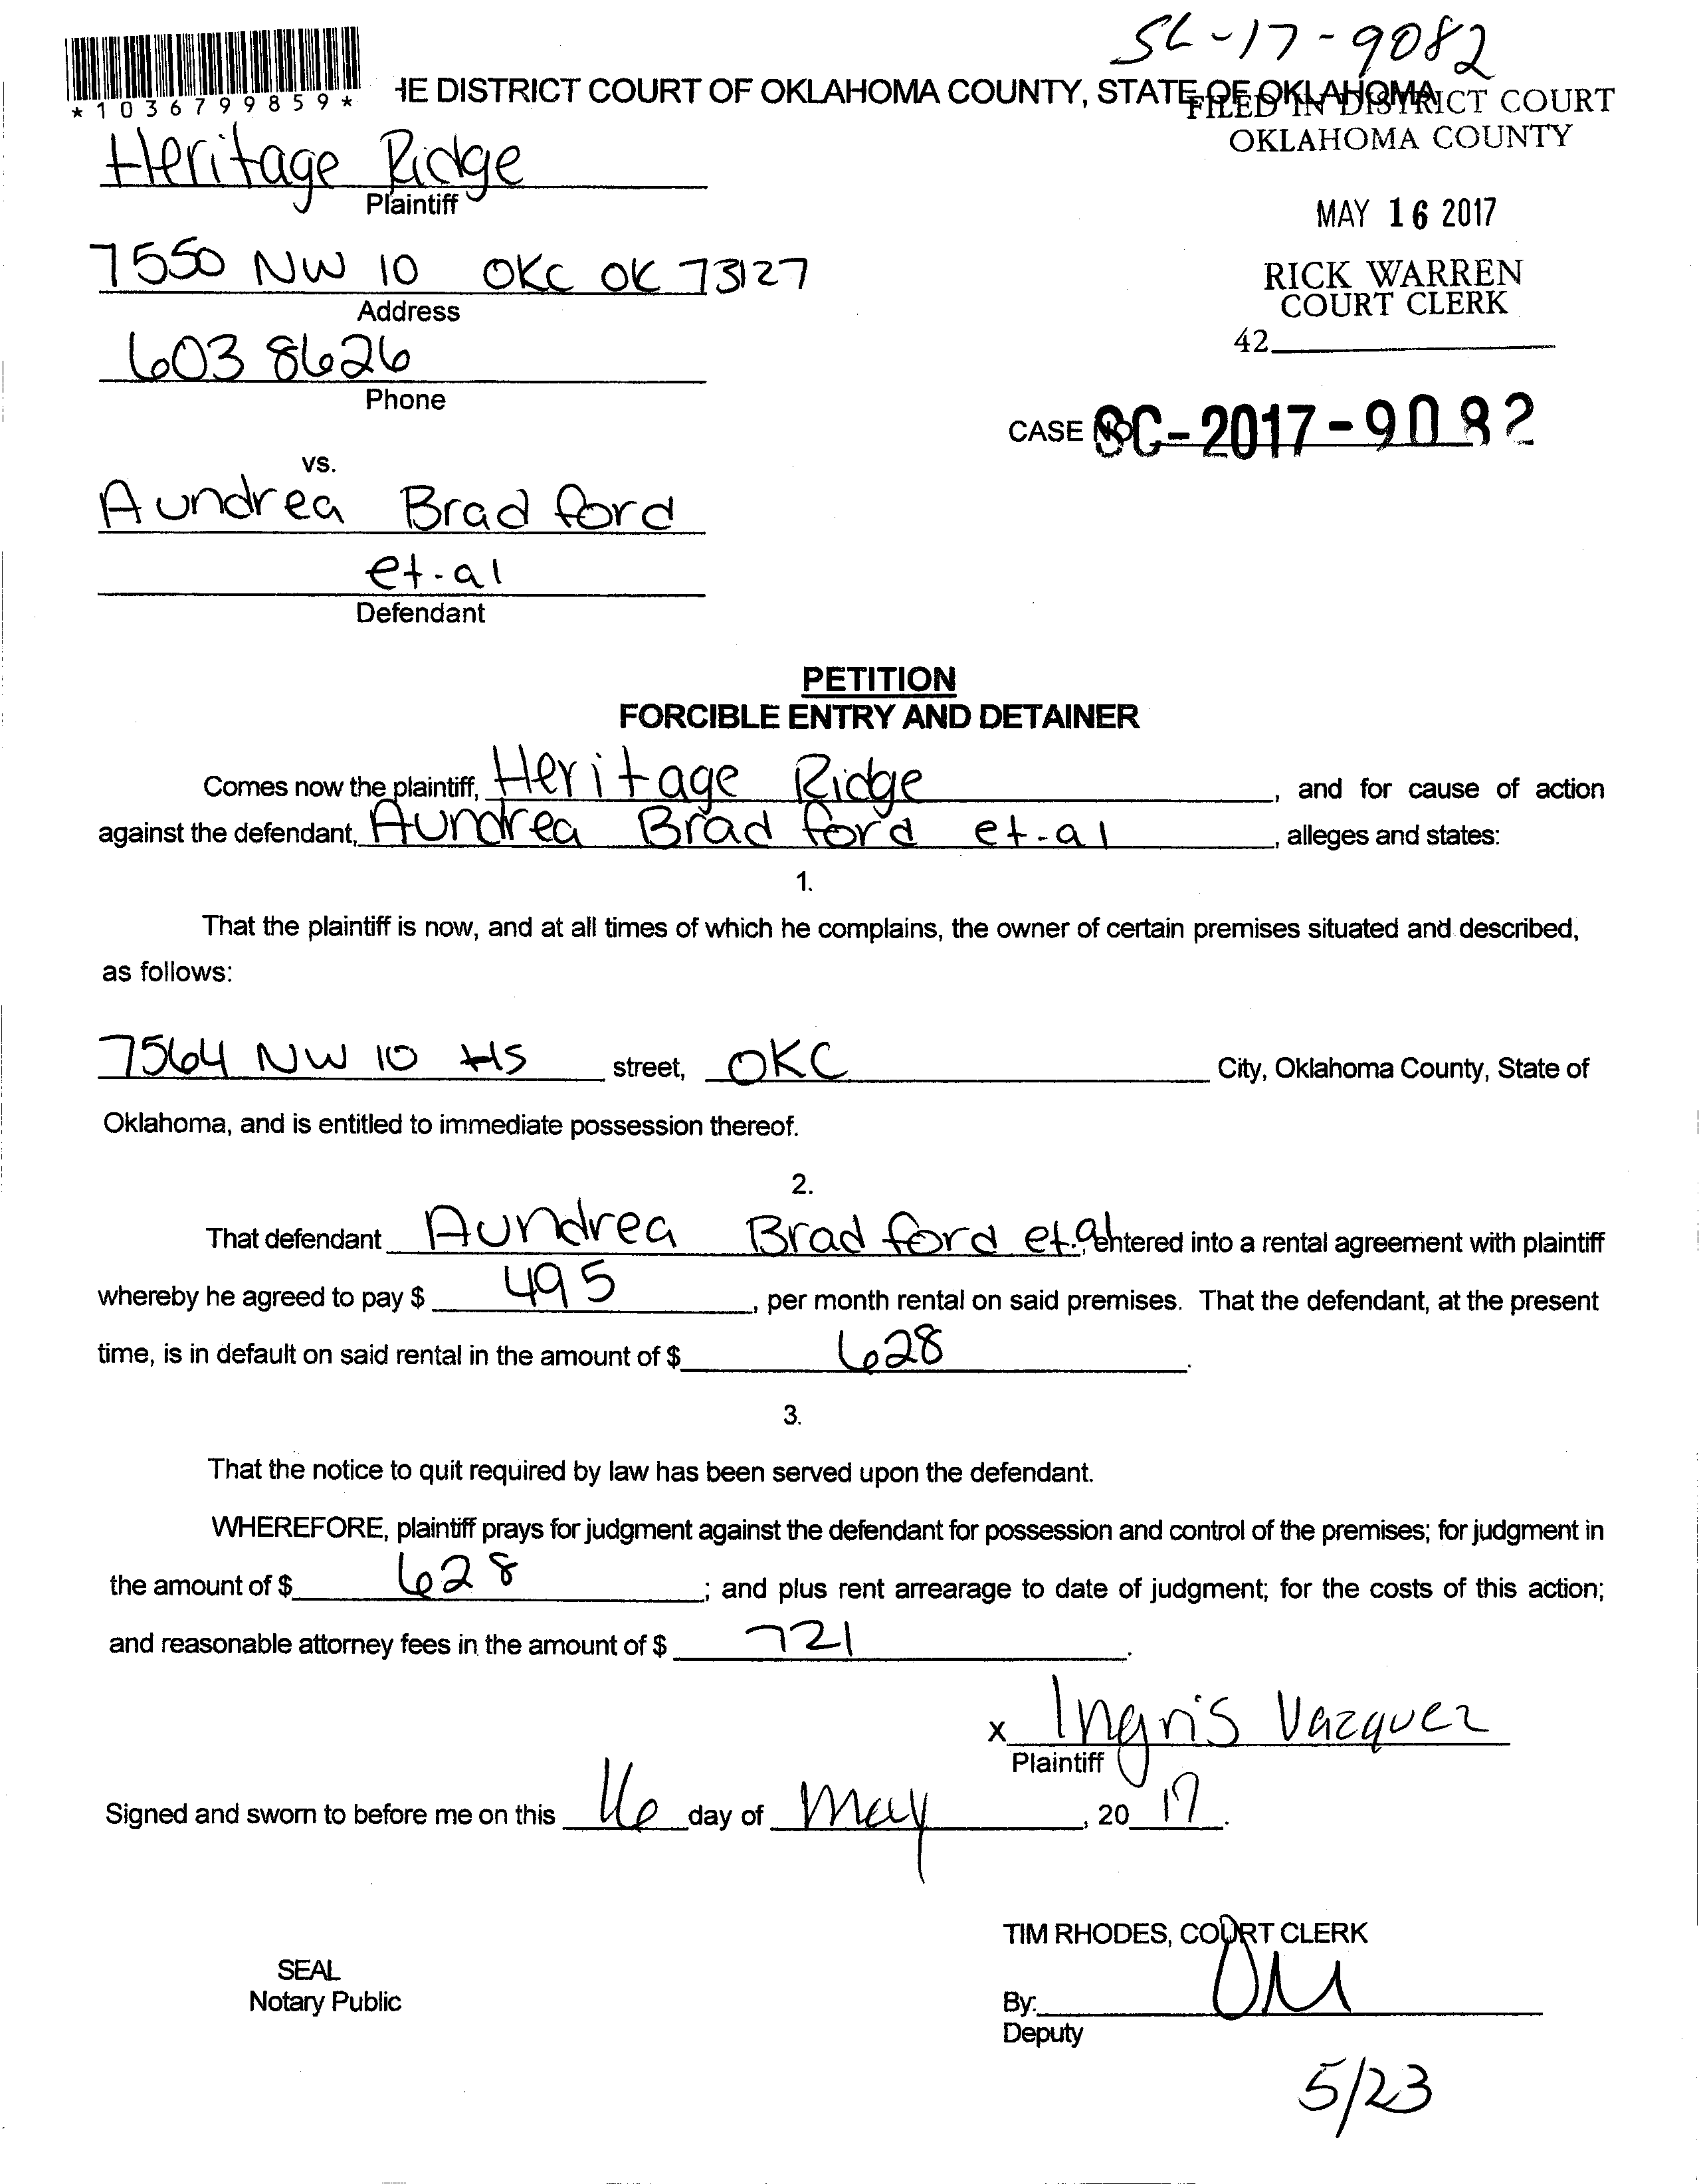 SC-17-9082
*1036799859*
HE DISTRICT COURT OF OKLAHOMA COUNTY, STATE OF OKLAHOMA
FILED IN DISTRICT COURT
OKLAHOMA COUNTY
Heritage Ridge
Plaintiff
MAY 16 2017
7550 NW 10 OKC OK 73127
Address
RICK WARREN
COURT CLERK
42
603 8626
Phone
CASE NO. SC-2017-9082
vs.
Aundrea Bradford
et-al
Defendant
PETITION
FORCIBLE ENTRY AND DETAINER
Comes now the plaintiff, Heritage Ridge, and for cause of action
against the defendant, Aundrea Bradford et-al, alleges and states:
1.
That the plaintiff is now, and at all times of which he complains, the owner of certain premises situated and described,
as follows:
7564 NW 10 HS street, OKC City, Oklahoma County, State of
Oklahoma, and is entitled to immediate possession thereof.
2.
That defendant Aundrea Bradford et.al entered into a rental agreement with plaintiff
whereby he agreed to pay $ 495, per month rental on said premises. That the defendant, at the present
time, is in default on said rental in the amount of $ 628.
3.
That the notice to quit required by law has been served upon the defendant.
WHEREFORE, plaintiff prays for judgment against the defendant for possession and control of the premises; for judgment in
the amount of $ 628; and plus rent arrearage to date of judgment; for the costs of this action;
and reasonable attorney fees in the amount of $ 721.
x Ingris Vazquez
Plaintiff
Signed and sworn to before me on this 16 day of May, 20 17.
TIM RHODES, COURT CLERK
SEAL
Notary Public
By:
Deputy
5/23